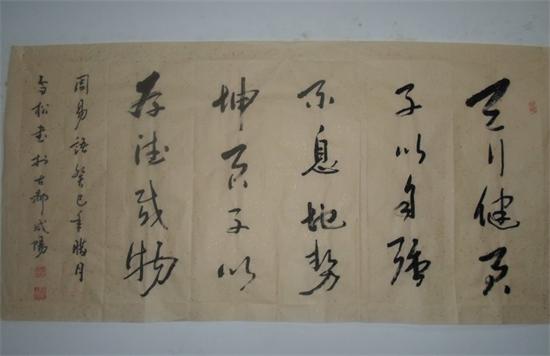 天行健君
子以自强
不息地势
坤君子以
厚德载物
周易語癸巳年腊月
松书於古都咸陽